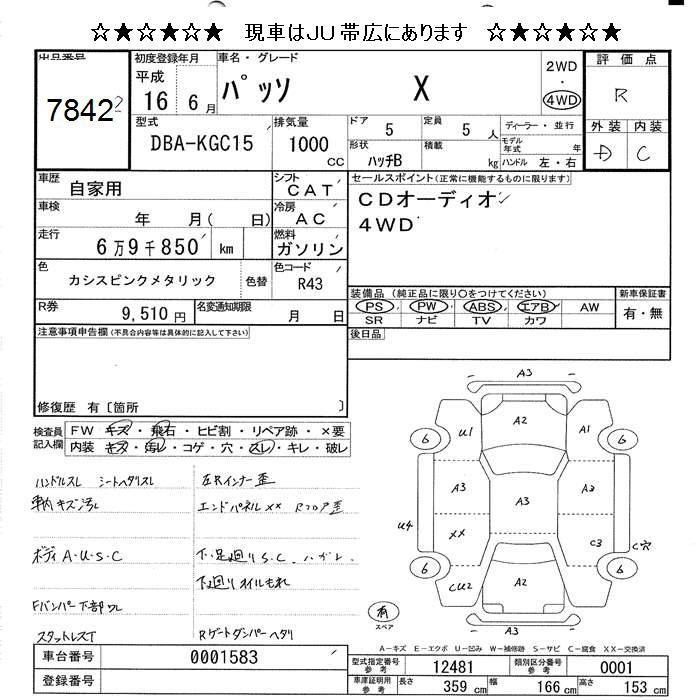 ☆★☆★☆★ 現車はJU帯広にあります ☆★☆★☆★
出品番号
7842
初度登録年月
平成
16 年 6 月
車名・グレード
パッソ X
2WD
・
4WD
評価点
R
外装 内装
D C
型式
DBA-KGC15
排気量
1000
CC
ドア 5
定員 5 人
ディーラー・並行
モデル年式 年
形状 ハッチB
積載 kg
ハンドル 左・右
車歴
自家用
シフト
CAT
車検
年 月( 日)
冷房
AC
走行
6万9千850 km
燃料
ガソリン
色
カシスピンクメタリック
色替
色コード
R43
R券
9,510 円
名変通知期限
月 日
セールスポイント(正常に機能するものに限ります)
CDオーディオ
4WD
装備品 (純正品に限り○をつけてください)
PS PW ABS エアB AW
SR ナビ TV カワ
新車保証書
有・無
後日品
注意事項申告欄(不具合内容等は具体的に記入して下さい)
修復歴 有〔箇所 〕
検査員記入欄
FW キズ・飛石・ヒビ割・リペア跡・×要
内装 キズ・汚レ・コゲ・穴・スレ・キレ・破レ
ハンドルスレ シートヘタリスレ
車内キズ汚レ
ボディA・U・S・C
Fバンパー下部ワレ
スタットレスT
左Rインナー歪
エンドパネルXX Rフロア歪
下・足廻りS.C.ハガレ
下廻りオイルもれ
Rゲートダンパーヘタリ
A3
A2
U1
A1
6
6
A3
A3
A2
U4
XX
C3
C穴
6
6
CU2
A2
A3
有
スペア
A-キズ E-エクボ U-凹み W-補修跡 S-サビ C-腐食 XX-交換済
車台番号 0001583
登録番号
型式指定番号参考 12481
類別区分番号参考 0001
車庫証明用参考
長さ 359 cm
幅 166 cm
高さ 153 cm